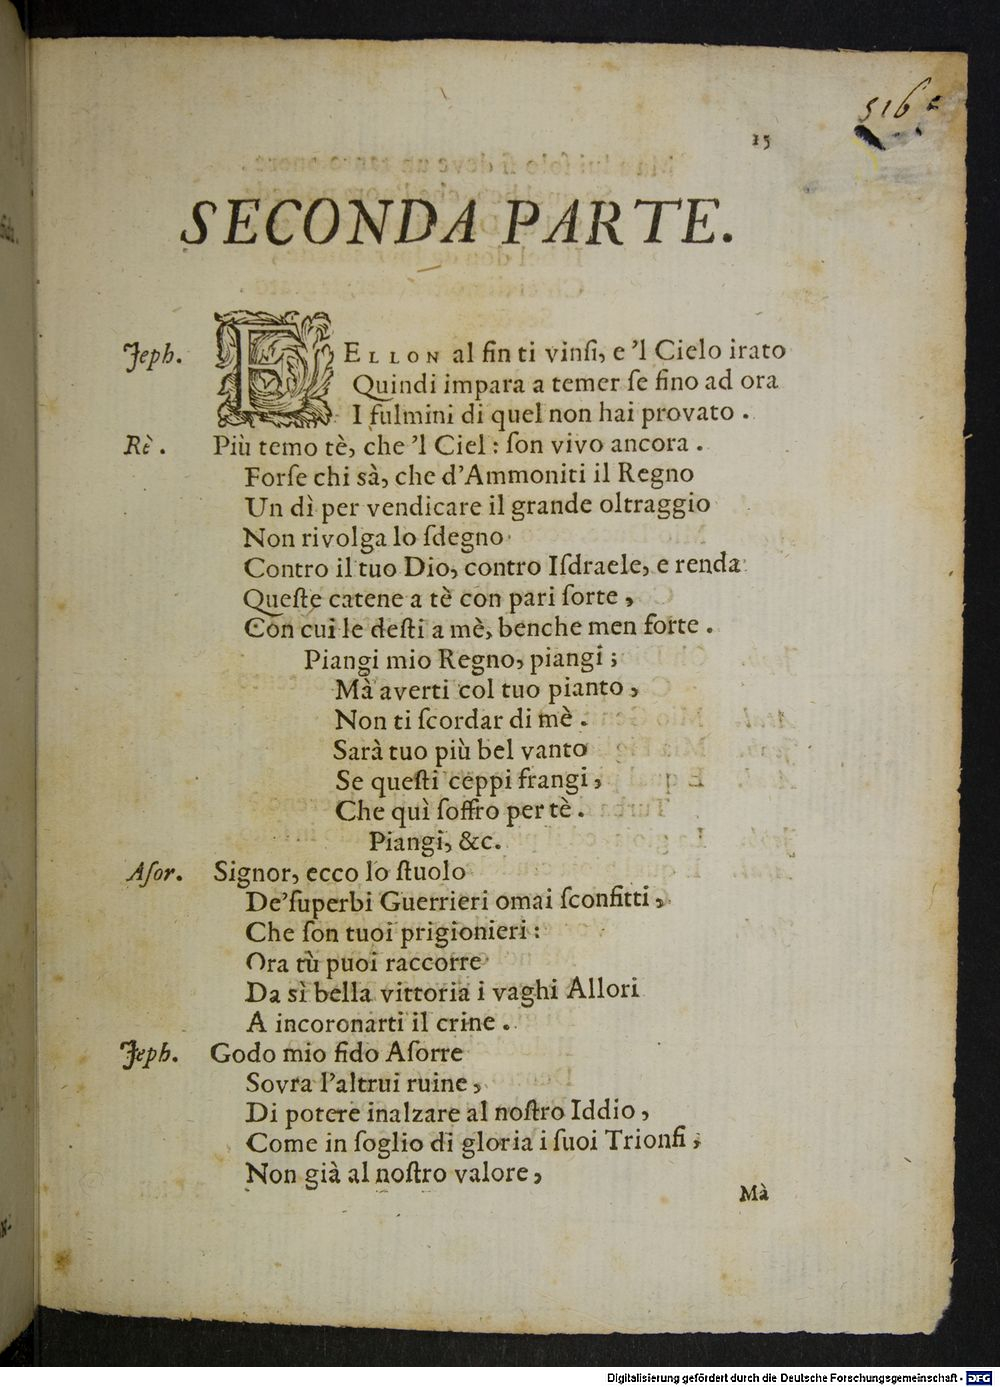 516
15
SECONDA PARTE.
Jeph. FELLON al fin ti vinſi, e 'l Cielo irato
Quindi impara a temer ſe fino ad ora
I fulmini di quel non hai provato .
Rè . Più temo tè, che 'l Ciel : ſon vivo ancora .
Forſe chi sà, che d'Ammoniti il Regno
Un dì per vendicare il grande oltraggio
Non rivolga lo ſdegno
Contro il tuo Dio, contro Iſdraele, e renda
Queſte catene a tè con pari ſorte ,
Con cui le deſti a mè, benche men forte .
Piangi mio Regno, piangi ;
Mà averti col tuo pianto ,
Non ti ſcordar di mè .
Sarà tuo più bel vanto
Se queſti ceppi frangi ,
Che quì ſoffro per tè .
Piangi, &c.
Aſor. Signor, ecco lo ſtuolo
De'ſuperbi Guerrieri omai ſconfitti ,
Che ſon tuoi prigionieri :
Ora tù puoi raccorre
Da sì bella vittoria i vaghi Allori
A incoronarti il crine .
Jeph. Godo mio fido Aſorre
Sovra l'altrui ruine ,
Di potere inalzare al noſtro Iddio ,
Come in ſoglio di gloria i ſuoi Trionfi ,
Non già al noſtro valore ,
Mà
Digitalisierung gefördert durch die Deutsche Forschungsgemeinschaft - DFG